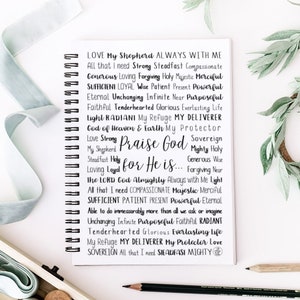 LOVE My Shepherd ALWAYS WITH ME
All that I need Strong Steadfast Compassionate
Generous Loving Forgiving Holy Majestic Merciful
SUFFICIENT LOYAL Wise Patient Present POWERFUL
Eternal Unchanging Infinite Near Purposeful
Faithful Tenderhearted Glorious Everlasting Life
Light RADIANT My Refuge MY DELIVERER
God of Heaven & Earth My Protector
Love Strong Praise God Sovereign
My Shepherd Mighty Holy
Steadfast Holy for He is... Generous Wise
Loving Loyal Forgiving Near
The LORD God Almighty Always with Me Light
All that I need COMPASSIONATE Majestic Merciful
SUFFICIENT PATIENT PRESENT Powerful Eternal
Able to do immeasurably more than all we ask or imagine
Unchanging Infinite Purposeful Faithful RADIANT
Tenderhearted Glorious Everlasting life
My Refuge MY DELIVERER My Protector Love
SOVEREIGN All that I need STEADFAST MIGHTY